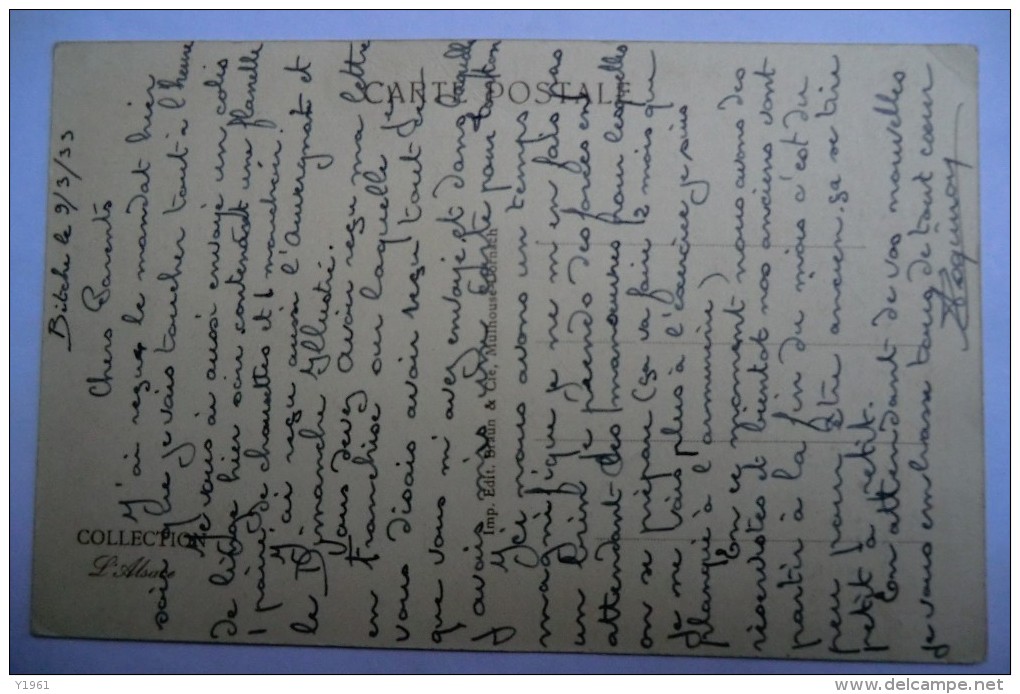 CARTE POSTALE
COLLECTION
L'Alsace
Imp. Edit. Braun & Cie, Mulhouse-Dornach
Bitche le 9/3/33
Chers Parents
J'ai reçu le mandat hier
soir que je vais toucher tout à l'heure
Je vous ai aussi envoyé un colis
de linge hier soir contenant une flanelle
1 paire de chaussettes et 1 mouchoir.
J'ai reçu aussi l'Auvergnat et
le Dimanche Illustré.
Vous devez avoir reçu ma lettre
en franchise sur laquelle je
vous disais avoir reçu tout ce
que vous m'avez envoyé et dans laquelle
j'avais mis une pour
Ici nous avons un temps
magnifique je ne m'en fais pas
un brin je prends des forces en
attendant les manœuvres pour lesquelles
on se prépare (ça va faire 2 mois que
je ne vais plus à l'exercice je suis
planqué à l'armurerie)
En ce moment nous avons des
réservistes et bientôt nos anciens vont
partir à la fin du mois c'est du
peu pour être ancien. ça se tire
petit à petit.
En attendant de vos nouvelles
je vous embrasse tous de tout cœur